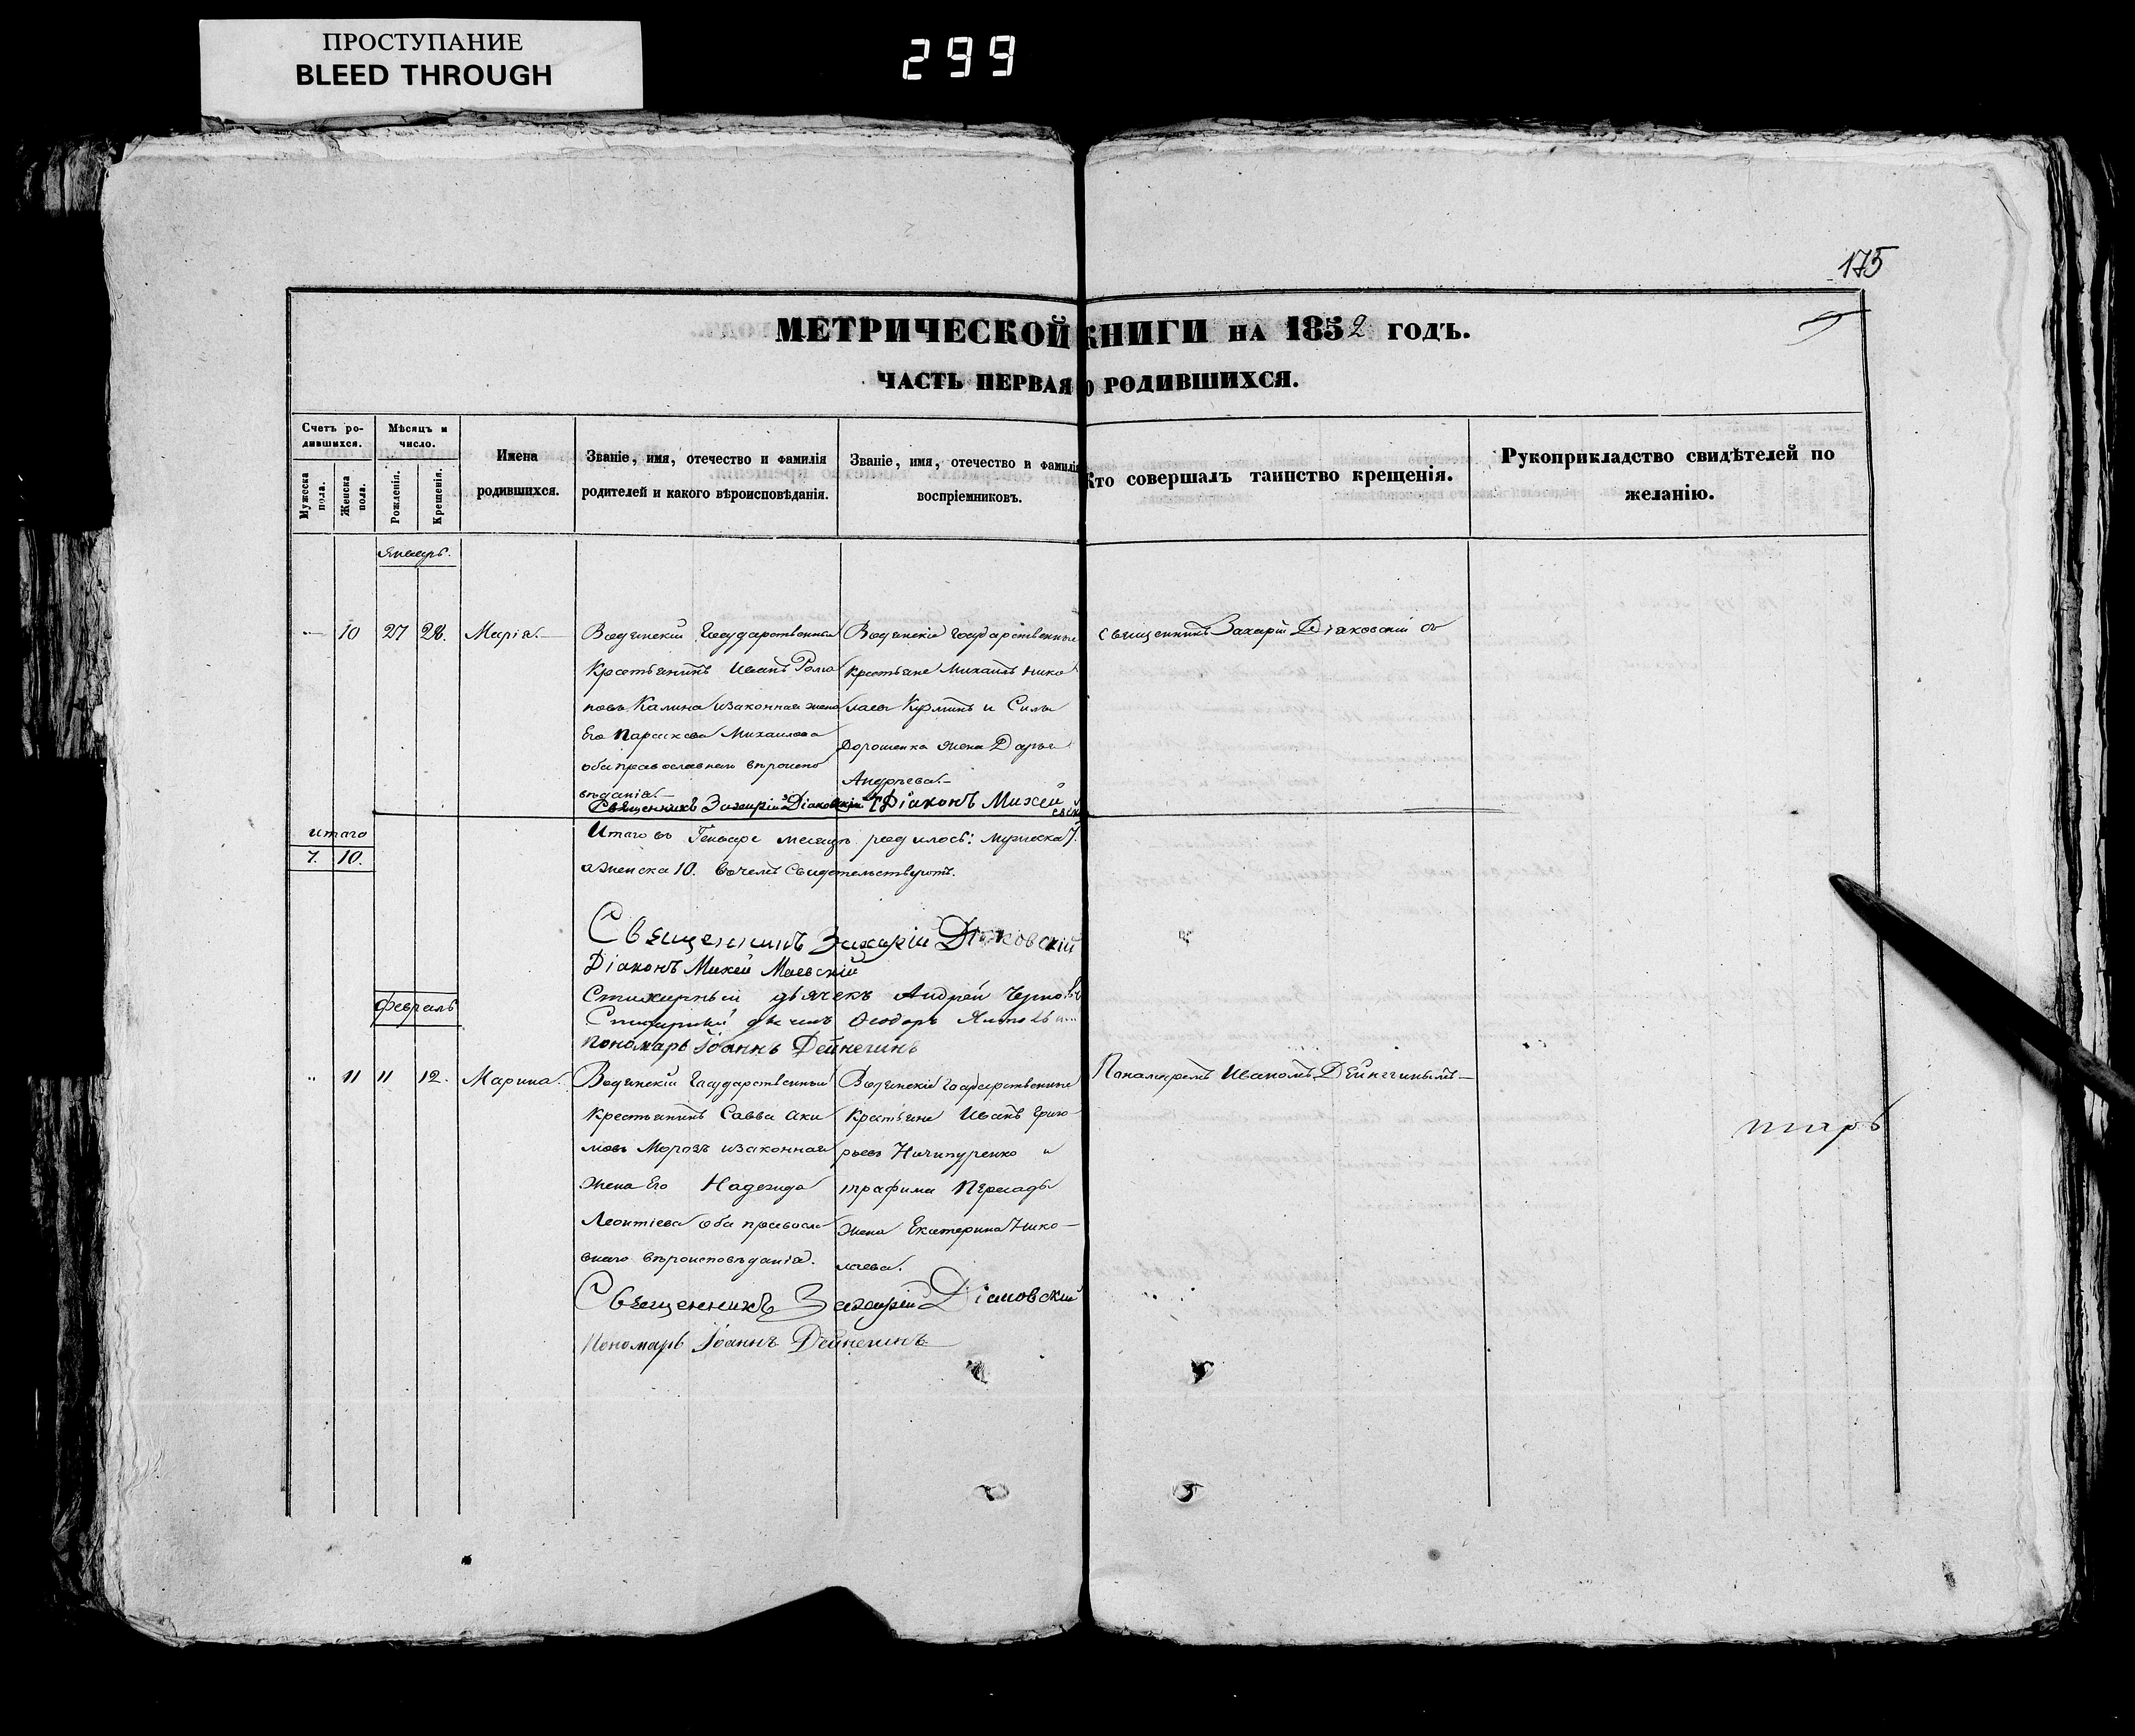 ПРОСТУПАНИЕ
BLEED THROUGH
299
175
МЕТРИЧЕСКОЙ КНИГИ НА 1852 ГОДЪ.
ЧАСТЬ ПЕРВАЯ О РОДИВШИХСЯ.
Счетъ ро-
дившихся.
Мужеска
пола.
Женска
пола.
Мѣсяцъ и
число.
Рожденія.
Крещенія.
Имена
родившихся.
Званіе, имя, отечество и фамилія
родителей и какого вѣроисповѣданія.
Званіе, имя, отечество и фамилія
воспріемниковъ.
Кто совершалъ таинство крещенія.
Рукоприкладство свидѣтелей по
желанію.
Январь.
10 27 28. Марія.
Водянскій Государственный
Крестьянинъ Иванъ Рома
новъ Калина изаконная жена
Его Параскева Михаилова
оба православнаго вѣроиспо
вѣданія.
Водянскіе государственные
Крестьяне Михаилъ Нико
лаевъ и Силы
Дорошенка жена Дарья
Андреева.
Священникъ Захарій Діаковскій съ
Священникъ Захарій Діаковскій Діаконъ Михей
Итого
7. 10.
Итого въ Генваре месяцѣ родилось: мужеска 7.
аженска 10. Вочемъ Свидетельствуютъ.
Священникъ Захарій Діаковскій
Діаконъ Михей Маевскій
Стихарный дьячекъ Андрей
Стихарный дьячекъ Ѳеодоръ
Пономарь Іоаннъ Дейнегинъ
Февраль
11 11 12. Марина.
Водянскій Государственный
Крестьянинъ Савва Аки
мовъ Морозъ изаконная
жена Его Надежда
Леонтіева оба правосла
внаго вѣроисповѣданія.
Водянскіе государственные
Крестьяне Иванъ Григо-
рьевъ Ничипуренко и
трафима
жена Екатерина Нико-
лаева.
Понамаремъ Иваномъ Дейнегинымъ
тарь
Священникъ Захарій Діаковскій
Пономарь Іоаннъ Дейнегинъ